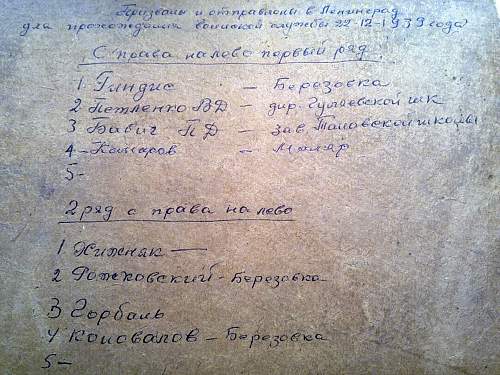 Призваны и отправлены в Ленинград
для прохождения воинской службы 22-12-1939 года
С права налево первый ряд.
1 Глидис — Березовка
2 Петленко ВД — дир. Гуляевской шк
3 Бабич ПД — зав. Таловской школы
4 - Комаров — Маляр
5 -
2 ряд с права налево
1 Хижняк —
2 Рожковский - Березовка
3 Горбаль
4 Коновалов - Березовка
5 -